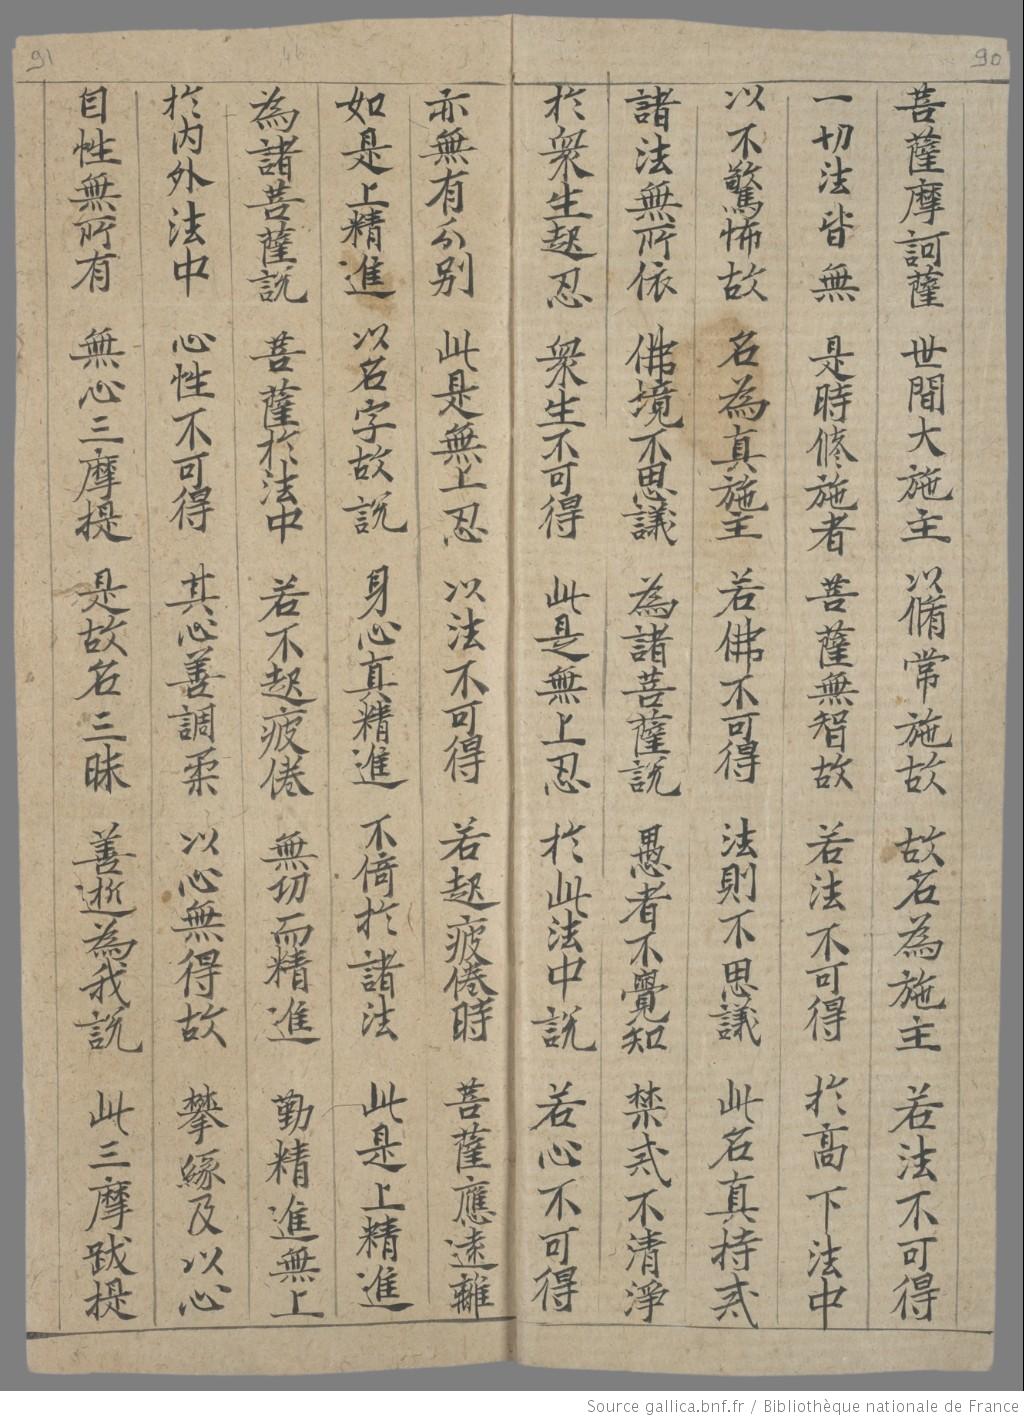 90
菩薩摩訶薩 世間大施主 以脩常施故 故名為施主 若法不可得
一切法皆無 是時修施者 菩薩無智故 若法不可得 於高下法中
以不驚怖故 名為真施主 若佛不可得 法則不思議 此名真持戒
諸法無所依 佛境不思議 為諸菩薩說 愚者不覺知 禁戒不清淨
於衆生起忍 衆生不可得 此是無上忍 於此法中說 若心不可得
91
46
亦無有分别 此是無上忍 以法不可得 若起疲倦時 菩薩應速離
如是上精進 以名字故說 身心真精進 不倚於諸法 此是上精進
為諸菩薩說 菩薩於法中 若不起疲倦 無功而精進 勤精進無上
於内外法中 心性不可得 其心善調柔 以心無得故 攀緣及以心
自性無所有 無心三摩提 是故名三昧 善逝為我說 此三摩跋提
Source gallica.bnf.fr / Bibliothèque nationale de France